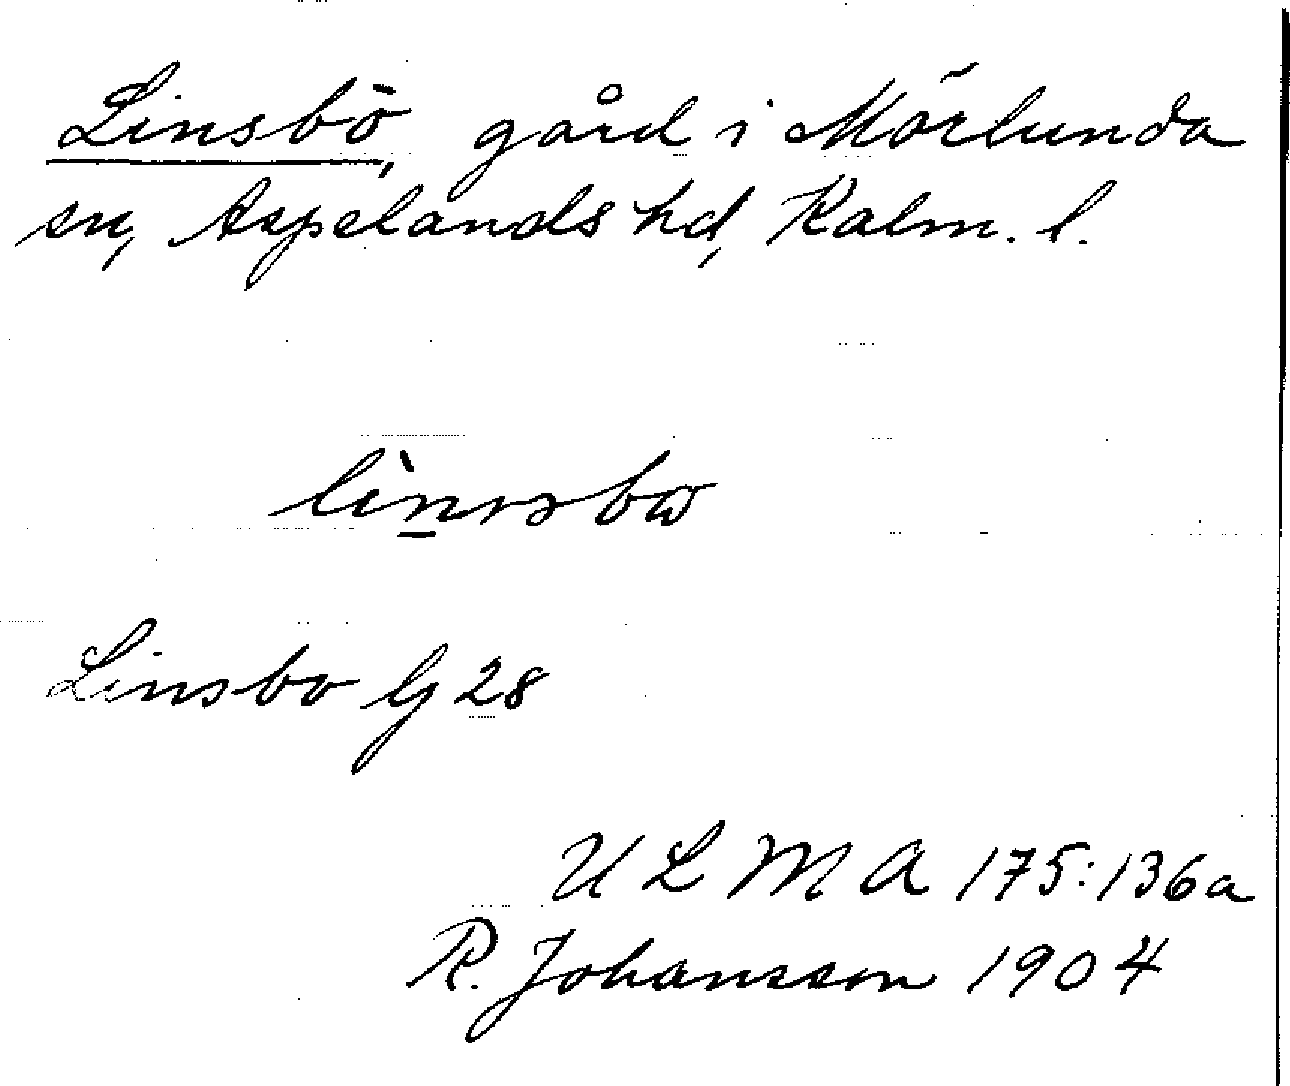 Linsbö, gård i Mörlunda
sn, Aspelands hd, Kalm. l.
Linsbo G 28
ULMA 175:136a
R. Johansson 1904